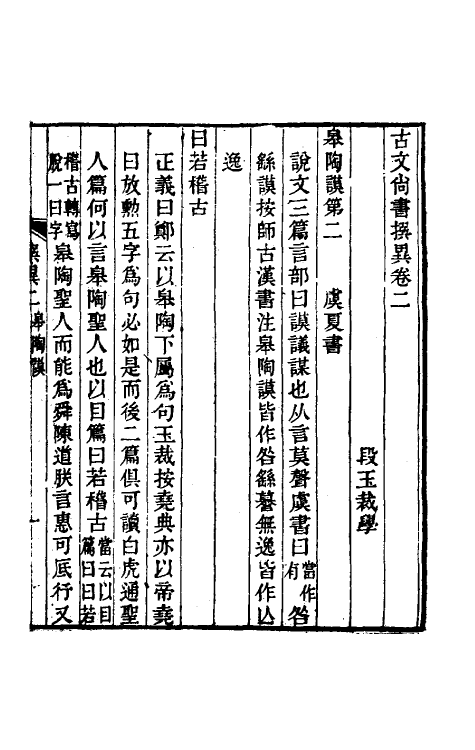 古文尚書撰異卷二
段玉裁學
皋陶謨第二　虞夏書
說文三篇言部曰謨議謀也从言莫聲虞書曰當作有咎
繇謨按師古漢書注皋陶謨皆作咎繇謩無逸皆作亾
逸
曰若稽古
正義曰鄭云以皋陶下屬爲句玉裁按堯典亦以帝堯
曰放勲五字爲句必如是而後二篇俱可讀白虎通聖
人篇何以言皋陶聖人也以目篇曰若稽古當云以目篇曰曰若
稽古轉寫脫一曰字皋陶聖人而能爲舜陳道朕言惠可底行又
撰異二　皋陶謨　一